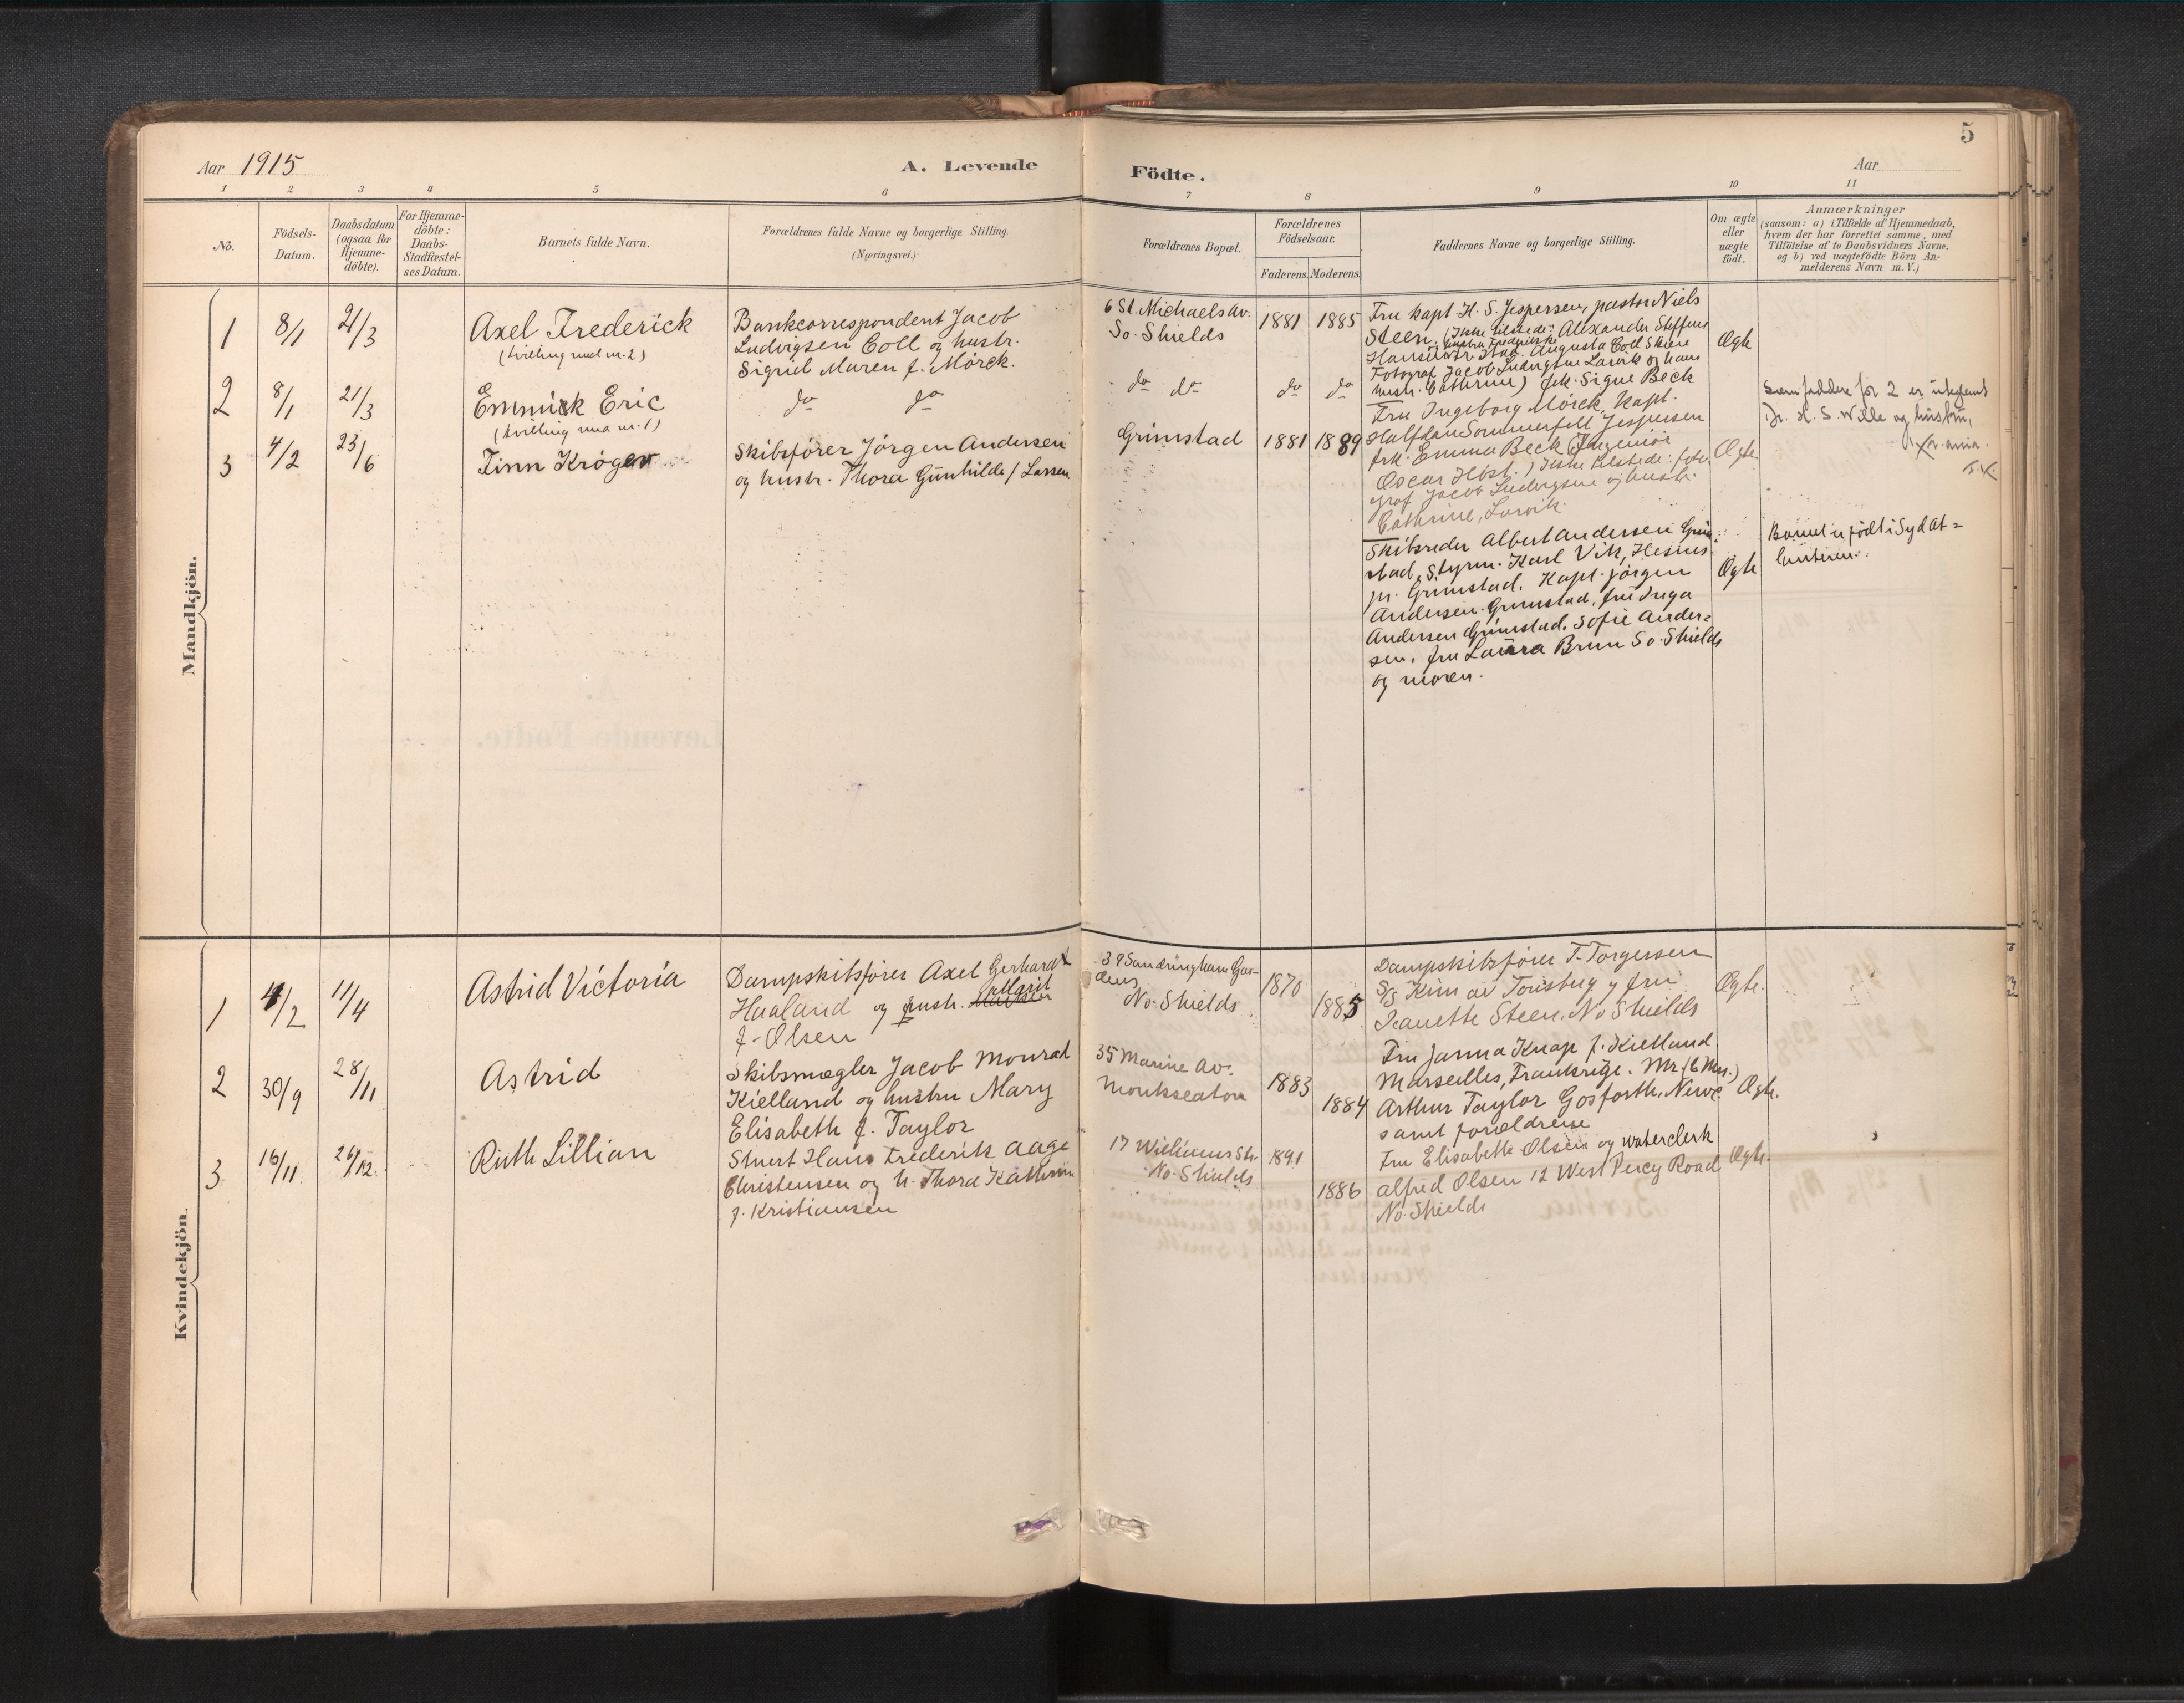 5
Aar 1915
A. Levende
Födte.
Aar
1 2 3 4 5 6 7 8 9 10 11
No.
Födsels-
Datum.
Daabsdatum
(ogsaa for
Hjemme-
döbte).
For Hjemme-
döbte:
Daabs-
Stadfæstel-
ses Datum.
Barnets fulde Navn.
Forældrenes fulde Navne og borgerlige Stilling.
(Næringsvei.)
Forældrenes Bopæl.
Forældrenes
Födselsaar.
Faderens. Moderens.
Faddernes Navne og borgerlige Stilling.
Om ægte
eller
uægte
födt.
Anmærkninger
(saasom: a) i Tilfælde af Hjemmedaab,
hvem der har forrettet samme, med
Tilföielse af to Daabsvidners Navne,
og b) ved uægtefödte Börn An-
melderens Navn m. V.)
Mandkjön.
1
8/1
21/3
Axel Frederick
(tvilling med nr. 2)
Bankcorrespondent Jacob
Ludvigsen Coll og hustr.
Sigrid Maren f. Mörck.
6 St. Michaels Av.
So. Shields
1881
1885
Fru kapt H. S. Jespersen, pastor Niels
Steen. (Ikke tilstede: Alexander Steffens
hustru Frederikke
Augusta Coll Skien
Fotograf Jacob Ludvigsen Larvik og hans
hustr. Cathrine) frk. Signe Beck
Ægte
2
8/1
21/3
Emmick Eric
(tvilling med nr. 1)
do do
do do
do
do
Fru Ingeborg Mörck, Kapt.
Halfdan Sommerfelt Jespersen
frk. Emma Beck (Ingeniör
Oscar Höst.) Ikke tilstede: foto
graf Jacob Ludvigsen og hustr.
Cathrine, Larvik.
Ægte
Som faddere for 2 er uteglemt
Dr. H. S. Wille og hustru,
3
4/2
23/6
Finn Kröger
Skibsförer Jörgen Andersen
og hustr. Thora Gunhilde f Larsen
Grimstad
1881
1889
Skibsreder Albert Andersen Grim-
stad, Styrm. Karl Vik, Hesnes
pr. Grimstad. Kapt. Jörgen
Andersen. Grimstad, fru Inga
Andersen Grimstad. Sofie Ander=
sen. fru Laura Brun So. Shields
og moren.
Ægte
Barnet er födt i Syd At=
lanteren.
Kvindekjön.
1
4/2
11/4
Astrid Victoria
Dampskibsförer Axel Gerhardt
Haaland og hustr. Marit
f. Olsen
39 Sandringham Gar-
dens
No. Shields
1870
1885
Dampskibsförer T. Torgersen
S/S Kim av Tönsberg og fru
Jeanette Steen. No Shields
Ægte.
2
30/9
28/11
Astrid
Skibsmægler Jacob Monrad
Kielland og hustru Mary
Elisabeth f. Taylor
35 Marine Av.
Monkseaton
1883
1884
Fru Janna Knap f. Kielland
Marseilles, Frankrige. Mr. (& Mrs.)
Arthur Taylor Gosforth. Newc
samt forældrene
Ægte.
3
16/11
26/12.
Ruth Lillian
Stuert Hans Frederik Aage
Christensen og h. Thora Kathrine
f. Kristiansen
17 Williams Str.
No. Shields
1891
1886
Fru Elisabeth Olsen og waterclerk
Alfred Olsen 12 West Percy Road
No. Shields
Ægte.